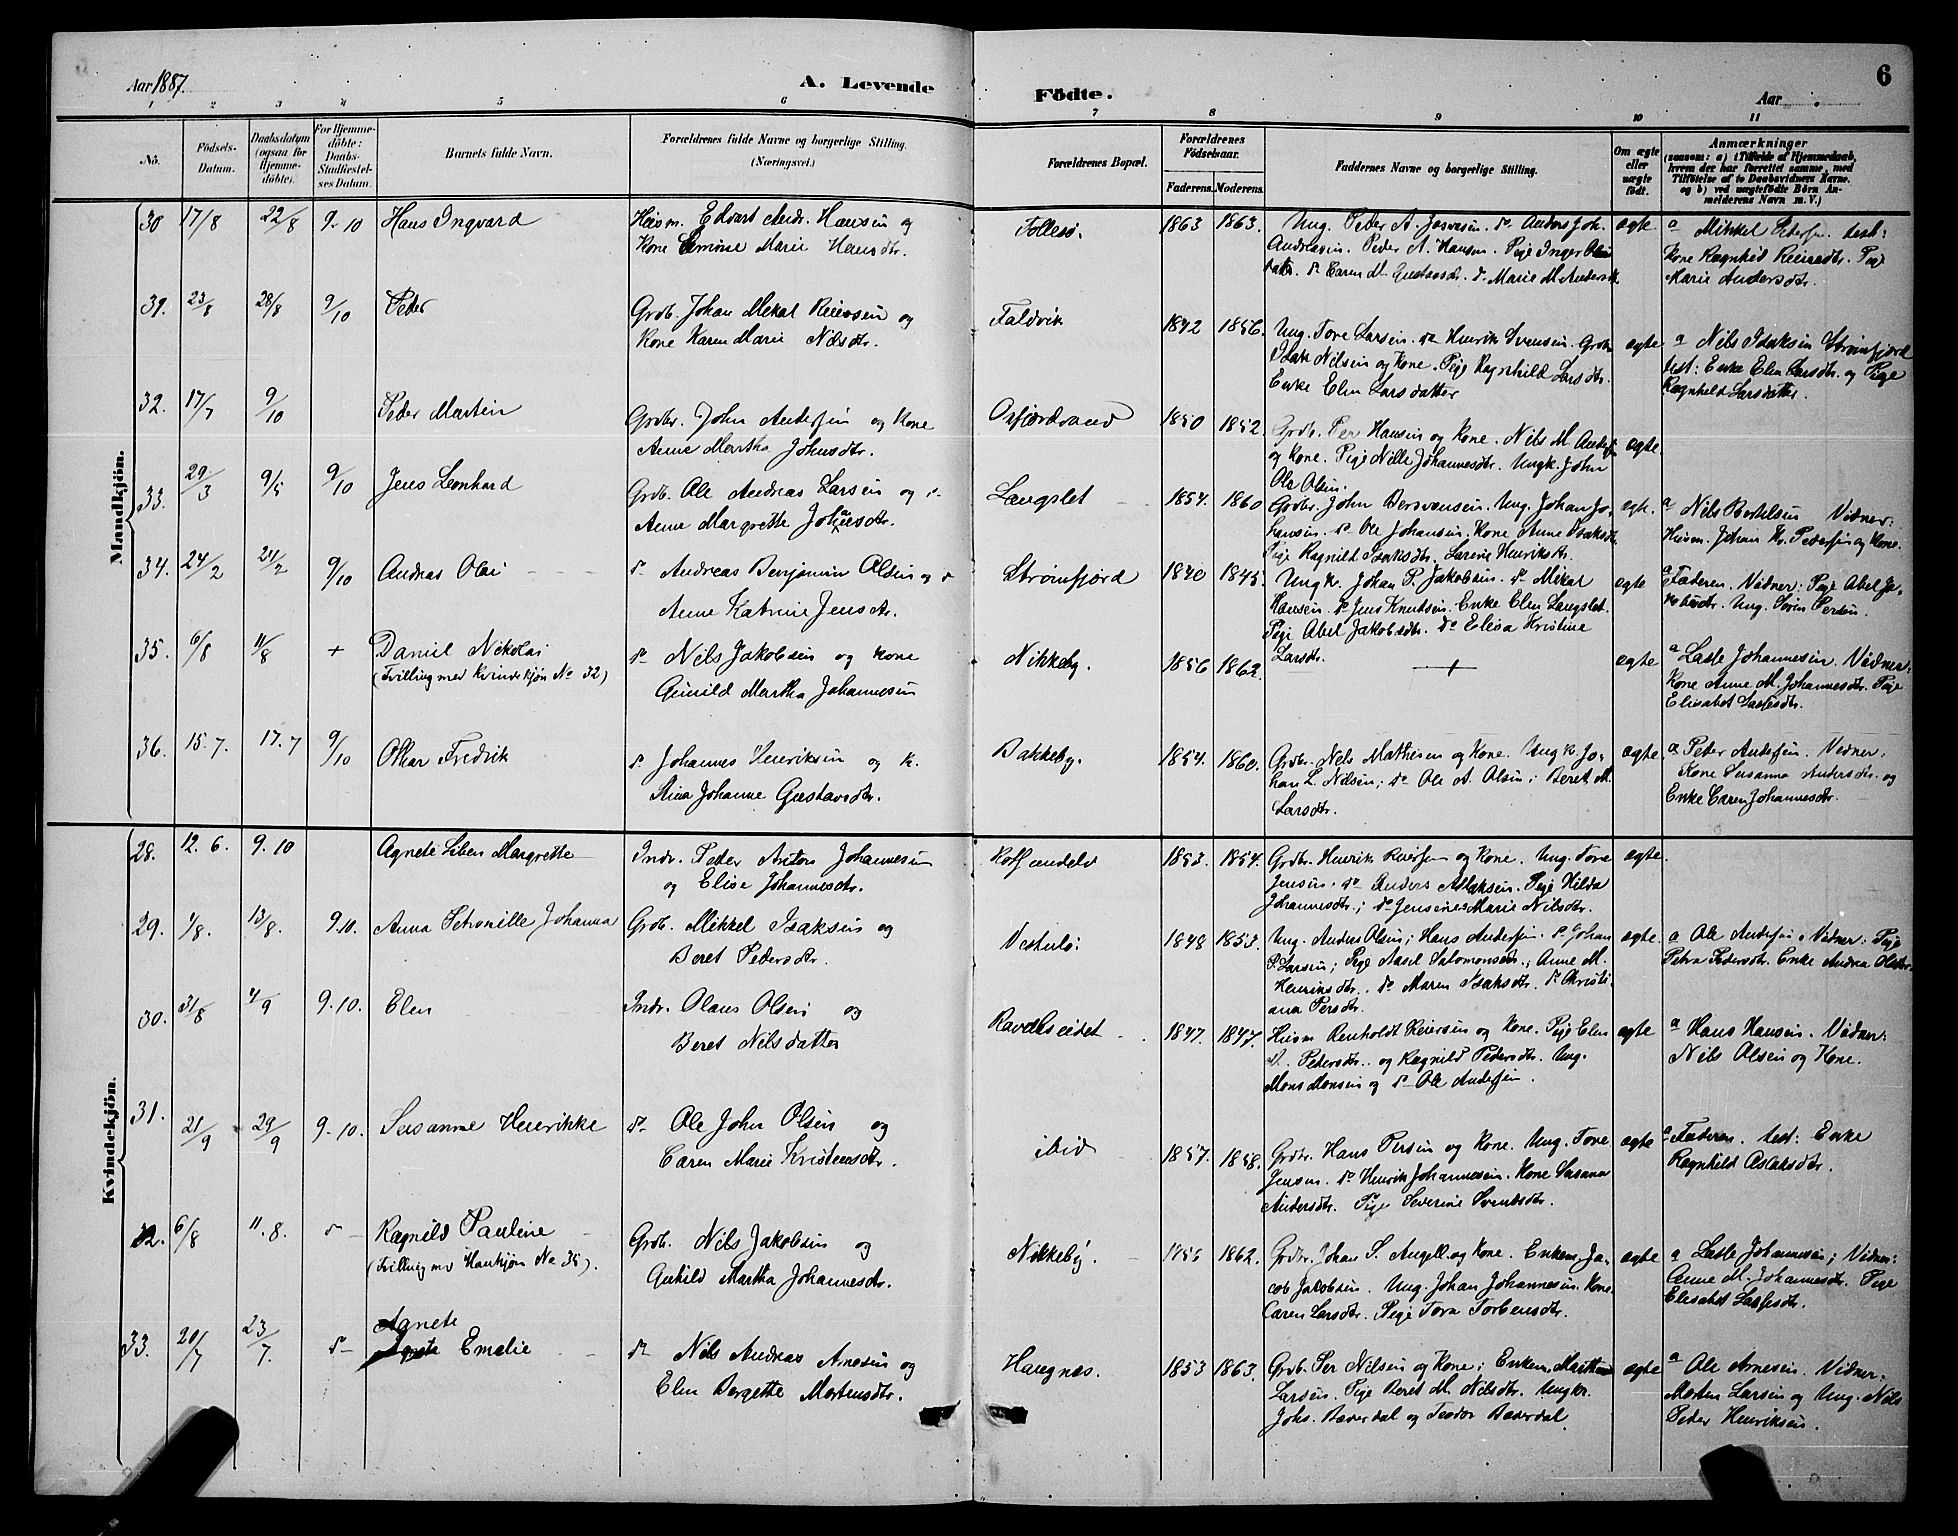 Aar 1887.
A. Levende Födte.
Aar
6
1 2 3 4 5 6 7 8 9 10 11
No.
Födsels-Datum.
Daabsdatum (ogsaa for Hjemme-döbte).
For Hjemme-döbte: Daabs-Stadfæstel-ses Datum.
Barnets fulde Navn.
Forældrenes fulde Navne og borgerlige Stilling. (Næringsvei.)
Forældrenes Bopæl.
Forældrenes Födselsaar.
Faderens. Moderens.
Faddernes Navne og borgerlige Stilling.
Om ægte eller uægte födt.
Anmærkninger
(saasom: a) i Tilfælde af Hjemmedaab,
hvem der har forrettet samme, med
Tilföielse af to Daabsvidners Navne.
og b) ved uægtefödte Börn An-
melderens Navn m. V.)
Mandkjön.
30 17/8 22/8 9.10 Hans Ingvard
Husm. Edvart Andr. Hansen og
Kone Simine Marie Hansdtr.
Follesø. 1863 1863.
Ung. Peder A. Josvasen. do Anders Joh.
Andreasen. Peder A. Hansen. Pige Inger
do Caren M. Gustavsdtr. do Marie M. Andersdtr.
ægte.
a Mikkel Pedersen. test:
Kone Ragnhild Reiersdtr. Pige
Marie Andersdtr.
31. 23/8 28/8 9/10 Peder
Grdb. Johan Mikal Reiersen og
Kone Karen Marie Nilsdtr.
Faldvik 1842 1856.
Ung. Tore Larsen. do Henrik Svensen. Grdbr
Isak Nilsen og Kone. Pige Ragnhild Larsdtr.
Enke Elen Larsdatter
ægte
a Nils Isaksen Strømfjord
test: Enke Elen Larsdtr. og Pige
Ragnhild Larsdatter.
32. 17/7 9/10 Peder Martin
Grdbr. John Andersen og Kone
Anne Martha Johnsdtr.
Oxfjordsund 1850 1852.
Grdb. Per Hansen og Kone. Nils M. Anders
og Kone. Pige Nille Johannesdtr. Ungk. John
Ole Olsen.
ægte.
33. 29/3 9/5 9/10 Jens Leonhard
Grdb. Ole Andreas Larsen og do
Anne Margrethe Johnsdtr.
Langslet 1854. 1860
Grdbr. John Bersvensen. Ung. Johan Jo-
hansen. do Ole Johansen. Kone Anne Isaksdtr
Pige Ragnild Isaksdtr. Larine Henriksdtr.
ægte.
a Nils Bertelsen Vidner:
Husm. Johan Kr. Pedersen og Kone.
34. 24/2 24/2 9/10 Andras Olai
do Andreas Benjamin Olsen og do
Anne Katrine Jensdtr.
Strømfjord 1840 1845.
Ungk. Johan P. Jakobsen. do Mikal
Hansen. do Jens Knutsen. Enke Elen Langslet.
Pige Abel Jakobsdtr. do Elisa Kristine
Larsdtr.
ægte
a Faderen. Vidner: Pige Abel Ja-
kobsdtr. Ung. Søren Persen.
35. 6/8 11/8 + Daniel Nikolai
(Tvilling med Kvindekjøn No 32)
do Nils Jakobsen og Kone
Gunild Martha Johannesen
Nikkeby. 1856 1862.
+
ægte
a Lasle Johannesen. Vidner:
Kone Anne M. Johannesdtr. Pige
Elisabet Laslesdtr.
36. 15.7. 17.7 9/10 Otkar Fredrik
do Johannes Henriksen og K.
Stina Johanne Gustavsdtr.
Bakkeby. 1854. 1860.
Grdbr. Nels Mathisen og Kone. Ungk. Jo-
han L. Nilsen; do Ole A. Olsen; Beret M.
Larsdtr.
ægte.
a Peder Andersen. Vidner.
Kone Susanna Andersdtr. og
Enke Caren Johannesdtr.
Kvindekjön.
28. 12.6. 9.10 Agnete Margrette
Indr. Peder Anton Johannesen
og Elise Johannesdtr.
1853. 1854.
Grdbr. Henrik Reiersen og Kone. Ung. Tore
Jensen. do Anders Aslaksen. Pige Hilda
Johannesdtr.; do Jensine Marie Nilsdtr.
ægte.
29. 1/8. 13/8. 9.10. Anna Petronille Johanna
Grdb. Mikkel Isaksen og
Beret Pedersdtr.
1848 1853.
Ung. Andreas Olsen; Hans Andersen. do Johan
P. Larsen; Pige Aasel Salomonsen; Anne M.
Henriksdtr. do Maren Isaksdtr. do Christi-
ana Persdtr.
ægte.
a Ole Andersen. Vidner: Pige
Petra Pedersdtr. Enke Andrea Olsdtr.
30. 31/8 4/9 9.10. Elen
Indr. Olaus Olsen og
Beret Nilsdatter
Ravelseidet 1847. 1847.
Husm Renholdt Reiersen og Kone. Pige Elen
Pedersdtr. og Ragnild Pedersdtr. Ung.
Mons Monsen og do Ole Andersen.
ægte
a Hans Hansen. Vidner:
Nils Olsen og Kone.
31. 21/9 29/9 9.10. Susanne Henrikke
do Ole John Olsen og
Caren Marie Kristensdtr.
ibid 1857. 1858.
Grdbr. Hans Persen og Kone. Ung. Tore
Jensen. do Henrik Johannesen. Kone Susanna
Andersdtr. Pige Severine Svendsdtr.
ægte
a Faderen. test: Enke
Ragnhild Aslaksdtr.
32. 6/8 11.8. do Ragnild Pauline
(Tvilling med Hankjøn No 35).
Grdb. Nils Jakobsen og
Gunild Martha Johannesdtr.
Nikkeby. 1856 1862.
Grdbr. Johan S. Angell og Kone. Enkem. Ja-
cob Jakobsen. Ung. Johan Johannesen. Kone
Caren Larsdtr. Pige Tora Torbensdtr.
ægte
a Lasle Johannesen; Vidner:
Anne M. Johannesdtr. Pige
Elisabet Laslesdtr.
33. 20/7 23/7. do Agnete
Emelie
do Nils Andreas Arnesen og
Elen Bergette Mortensdtr.
Haugnes. 1853 1863.
Grdb. Per Nilsen og Kone; Enkem. Matthias
Larsen. Pige Beret M. Nilsdtr. Ungkr.
Johs. Bæverdal og Teodor Bæverdal
ægte
a Ole Arnesen. Vidner.
Morten Larsen og Ung. Nils
Peder Henriksen.